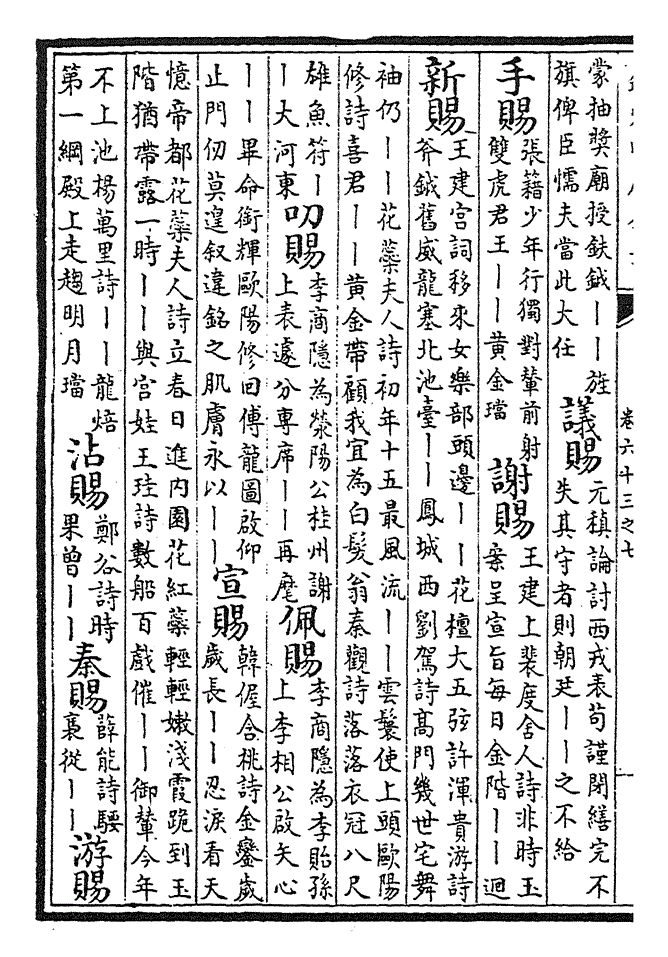 卷六十三之七
蒙抽獎廟授鈇鉞｜｜旌
旗俾臣懦夫當此大任
議賜
元稹論討西戎表苟謹閉繕完不
失其守者則朝廷｜｜之不給
手賜
張籍少年行獨對輦前射
雙虎君王｜｜黃金璫
謝賜
王建上裴度舍人詩非時玉
案呈宣旨每日金階｜｜迴
新賜
王建宮詞移來女樂部頭邊｜｜花檀大五弦許渾貴游詩
斧鉞舊威龍塞北池臺｜｜鳳城西劉駕詩高門幾世宅舞
袖仍｜｜花蘂夫人詩初年十五最風流｜｜雲鬟使上頭歐陽
修詩喜君｜｜黃金帶顧我宜為白髮翁秦觀詩落落衣冠八尺
雄魚符｜
｜大河東
叨賜
李商隱為滎陽公桂州謝
上表遽分專席｜｜再麾
佩賜
李商隱為李貽孫
上李相公啟矢心
｜｜畢命銜輝歐陽修回傅龍圖啟仰
止門仞莫遑叙違銘之肌膚永以｜｜
宣賜
韓偓含桃詩金鑾歲
歲長｜｜忍淚看天
憶帝都花蘂夫人詩立春日進內園花紅蘂輕輕嫩淺霞跪到玉
階猶帶露一時｜｜與宮娃王珪詩數船百戲催｜｜御輦今年
不上池楊萬里詩｜｜龍焙
第一綱殿上走趨明月璫
沾賜
鄭谷詩時
果曾｜｜
秦賜
薛能詩騕
褭從｜｜
游賜